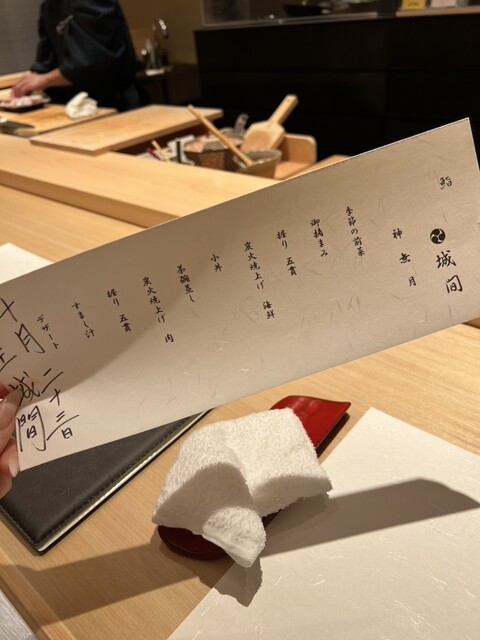 鮨 城間
神無月
季節の前菜
御摘まみ
握り 五貫
炭火焼上げ 海鮮
小丼
茶碗蒸し
炭火焼上げ 肉
握り 五貫
すまし汁
デザート
十月二十三日
城間